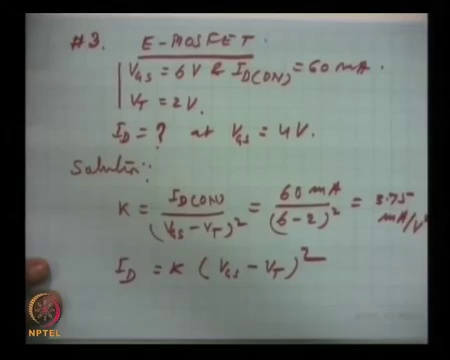 #3. E-MOSFET.
V_GS = 6V & I_D(ON) = 60 mA.
V_T = 2V.
I_D = ? at V_GS = 4V.
Solution:
K = I_D(ON) / (V_GS - V_T)^2 = 60 mA / (6-2)^2 = 3.75 mA/V^2
I_D = K (V_GS - V_T)^2
NPTEL